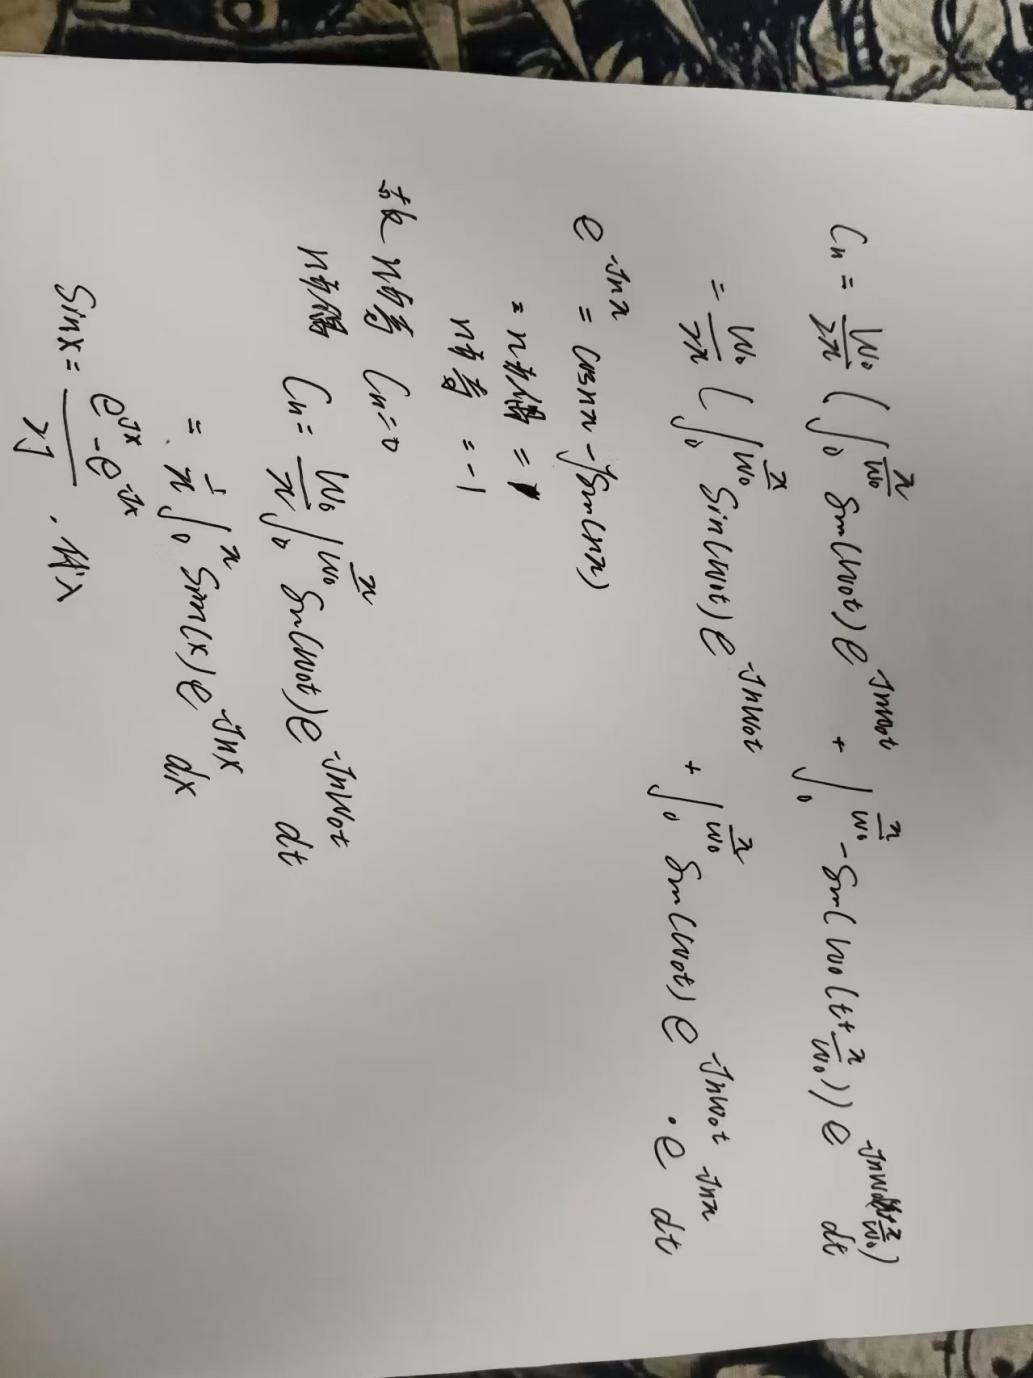 Cn = W₀/2π ( ∫₀^(π/W₀) Sin(W₀t) e^(-JnW₀t) + ∫₀^(π/W₀) -Sin(W₀(t+π/W₀)) e^(-JnW₀(t+π/W₀)) dt
= W₀/2π ( ∫₀^(π/W₀) Sin(W₀t) e^(-JnW₀t) + ∫₀^(π/W₀) Sin(W₀t) e^(-JnW₀t) · e^(-Jnπ) dt
e^(-Jnπ) = Cosnπ - JSin(nπ)
= n为偶 = 1
n为奇 = -1
故 n为奇 Cn=0
n为偶 Cn = W₀/π ∫₀^(π/W₀) Sin(W₀t) e^(-JnW₀t) dt
= 1/π ∫₀^π Sin(x) e^(-Jnx) dx
Sinx = (e^(Jx) - e^(-Jx))/2J .